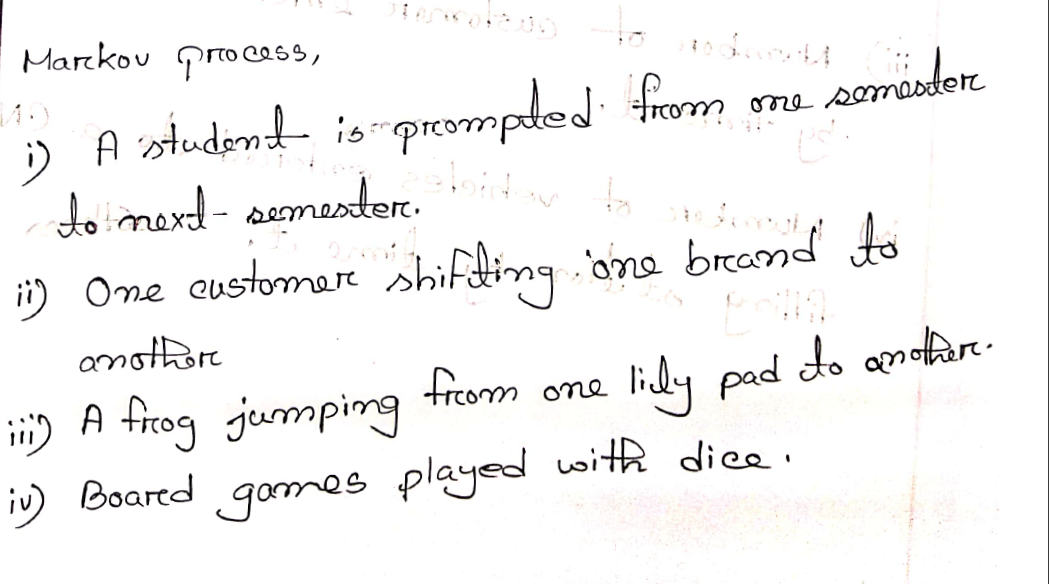 Marckov process,
i) A student is prompted from one semester
to next semester.
ii) One customer shifting one brand to
another
iii) A frog jumping from one lidy pad to another.
iv) Boared games played with dice.